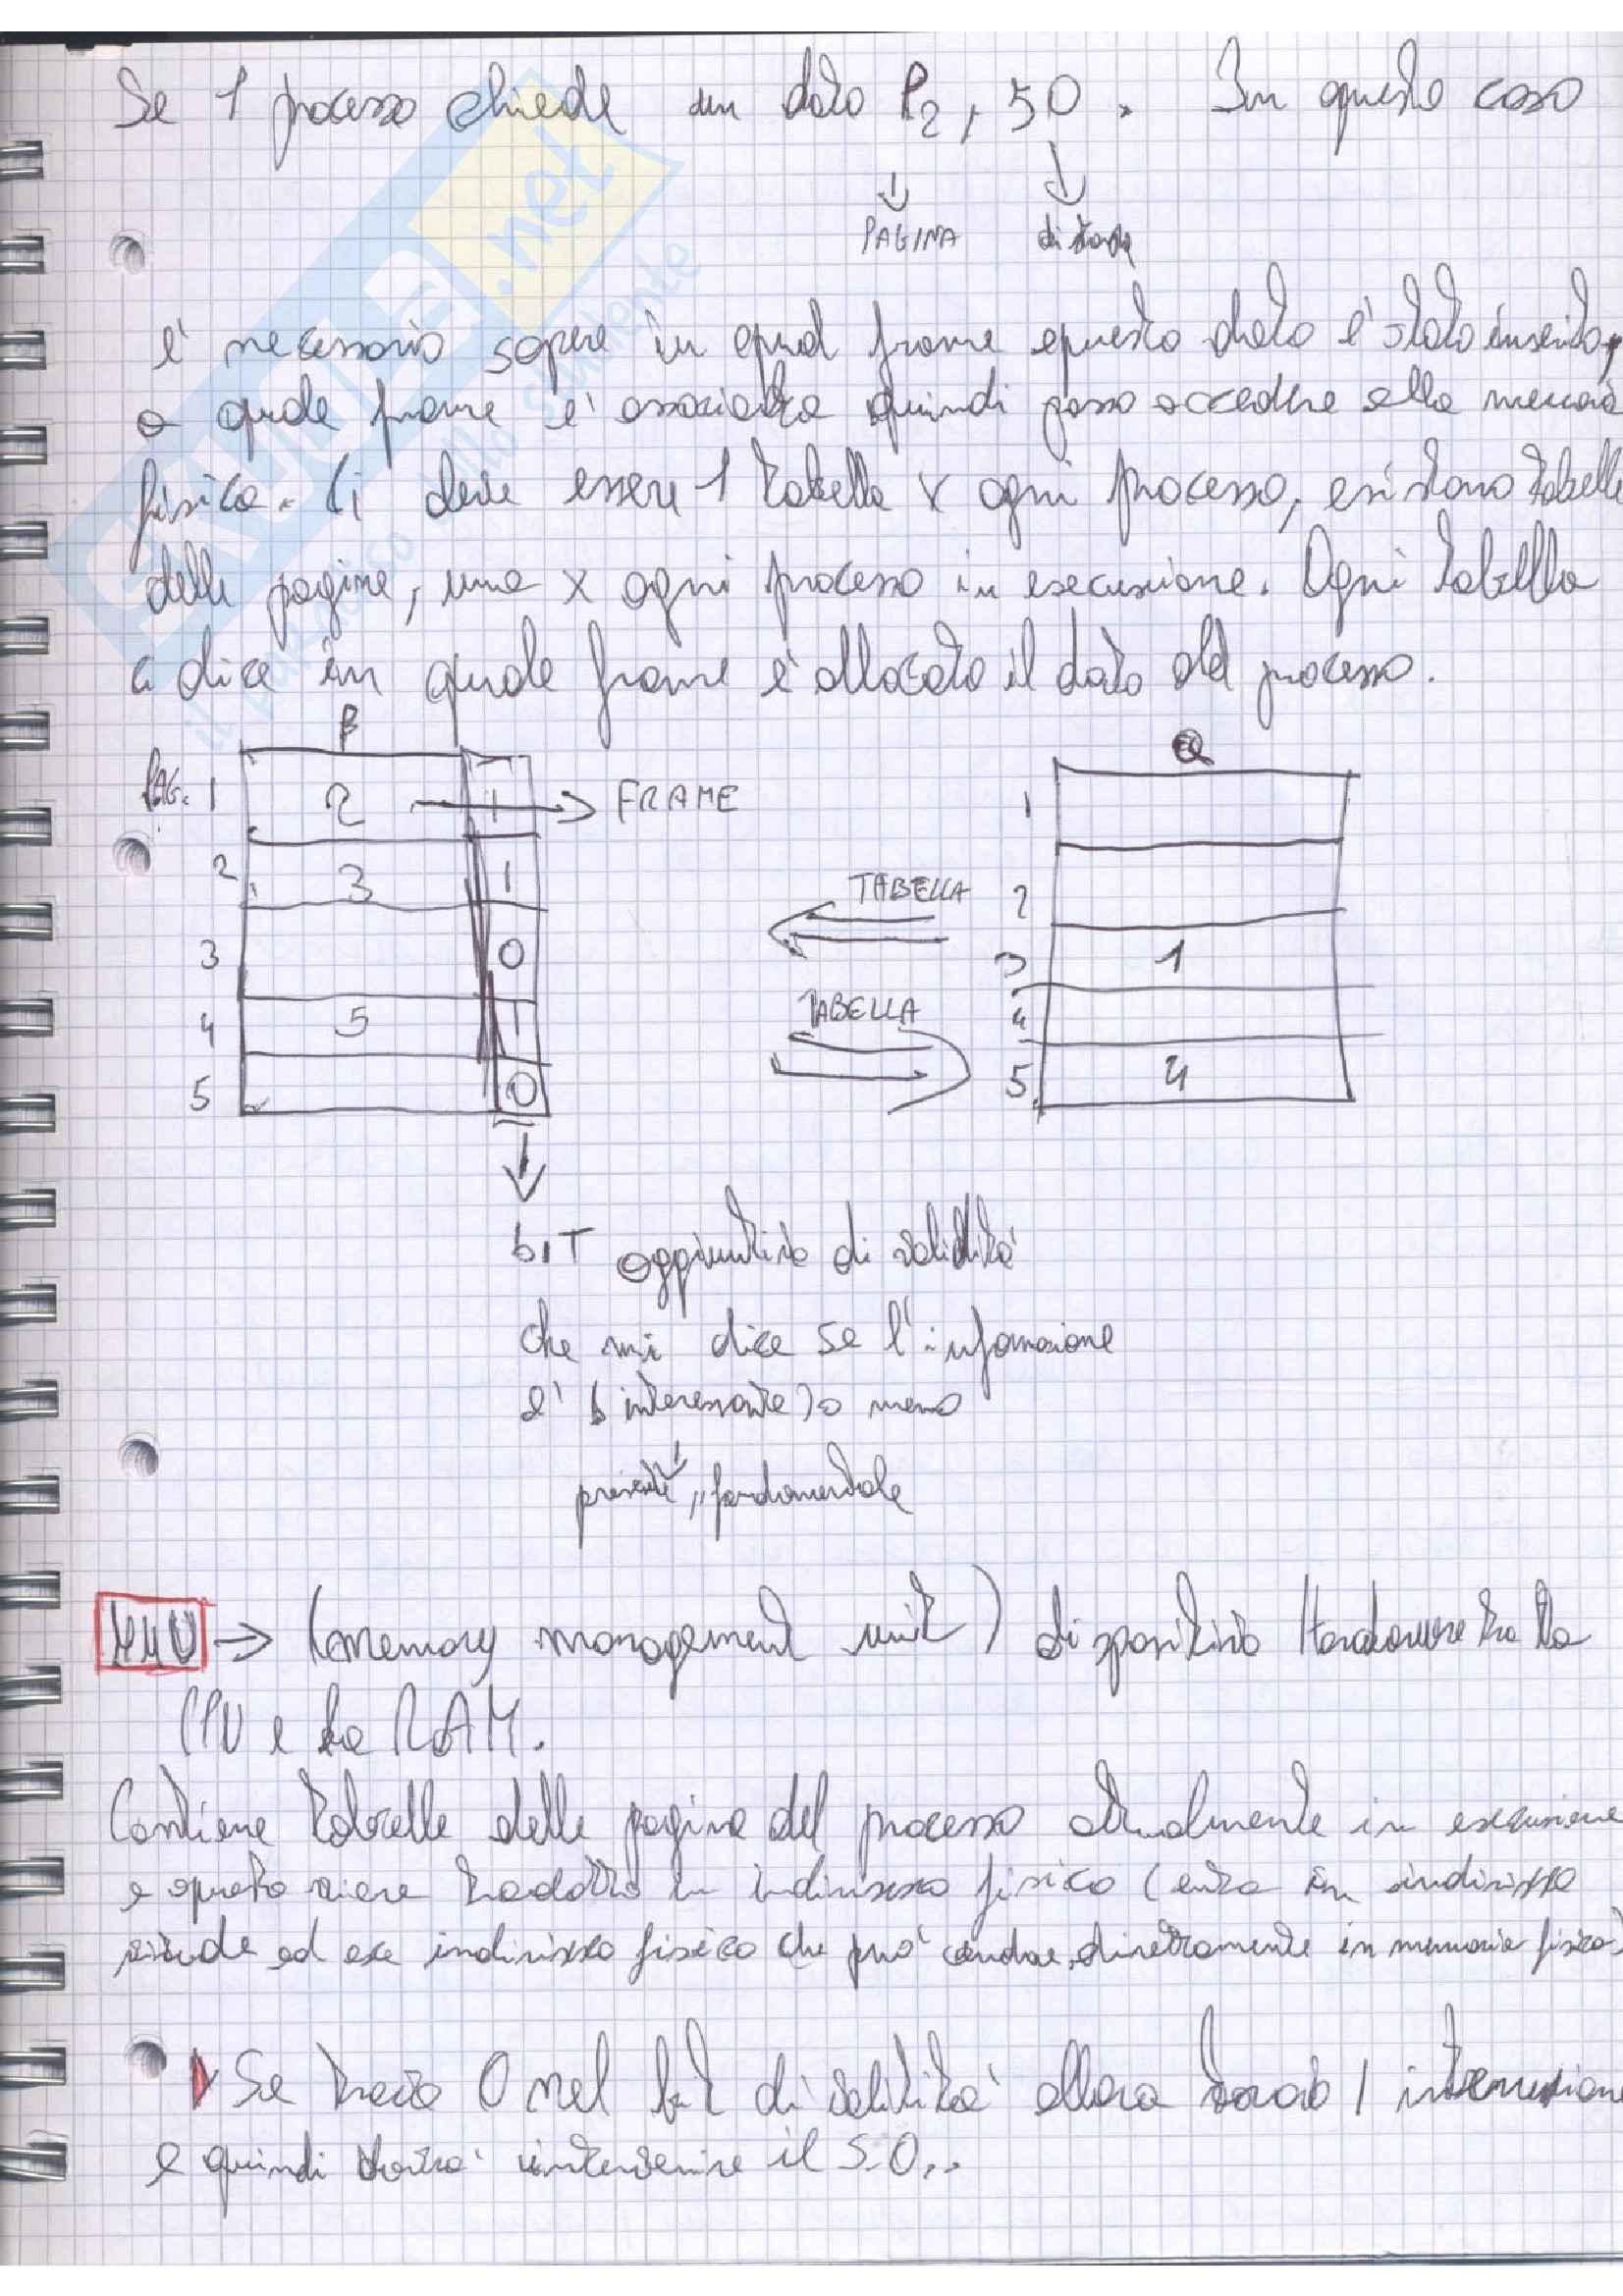 Se 1 processo chiede un dato P2, 50. In questo caso
PAGINA distanza
è necessario sapere in qual frame questo dato è stato inserito,
a quale frame è associato quindi posso accedere alla memoria
fisica. Ci deve essere 1 tabella x ogni processo, esistono tabelle
delle pagine, una x ogni processo in esecuzione. Ogni tabella
ci dice in quale frame è allocato il dato del processo.
P
Q
PAG. 1 2 1 → FRAME
2 3 1
3 0
4 5 1
5 0
TABELLA
TABELLA
1
2
3 1
4
5 4
bIT aggiuntivo di validità
che mi dice se l'informazione
è (interessante) o meno
presente, fondamentale
MMU → (memory management unit) dispositivo Hardware tra la
CPU e la RAM.
Contiene tabelle delle pagine del processo attualmente in esecuzione
e questo viene tradotto in indirizzo fisico (entra in indirizzo
ed esce indirizzo fisico che può andare direttamente in memoria fisica)
Se trovo 0 nel bit di validità allora 1 interruzione
e quindi dovrà intervenire il S.O..